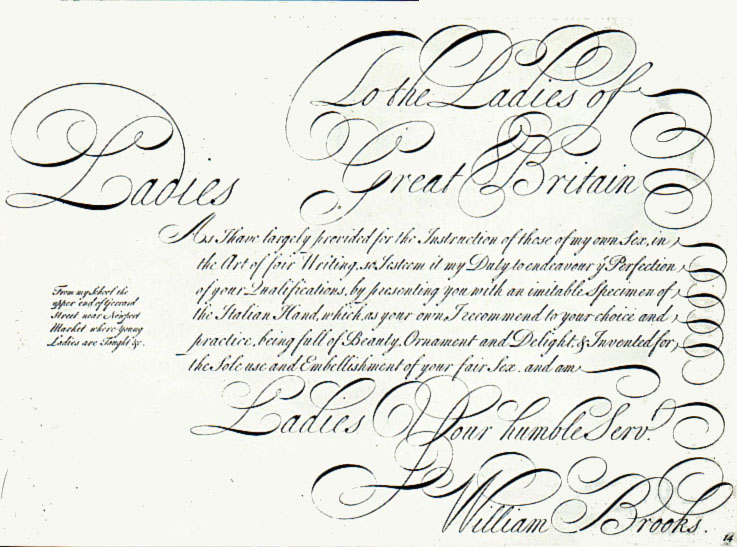 To the Ladies of
Great Britain
Ladies
As I have largely provided for the Instruction of those of my own Sex, in
the Art of fair Writing, so I esteem it my Duty to endeavour yᵉ Perfection
of your Qualifications, by presenting you with an imitable Specimen of
the Italian Hand, which, as your own I recommend to your choice and
practice, being full of Beauty, Ornament and Delight, & Invented for
the Sole use and Embellishment of your fair Sex. and am
From my School the
upper end of Gerrard
Street near Newport
Market where Young
Ladies are Taught &c.
Ladies Your humble Servᵗ.
William Brooks.
14